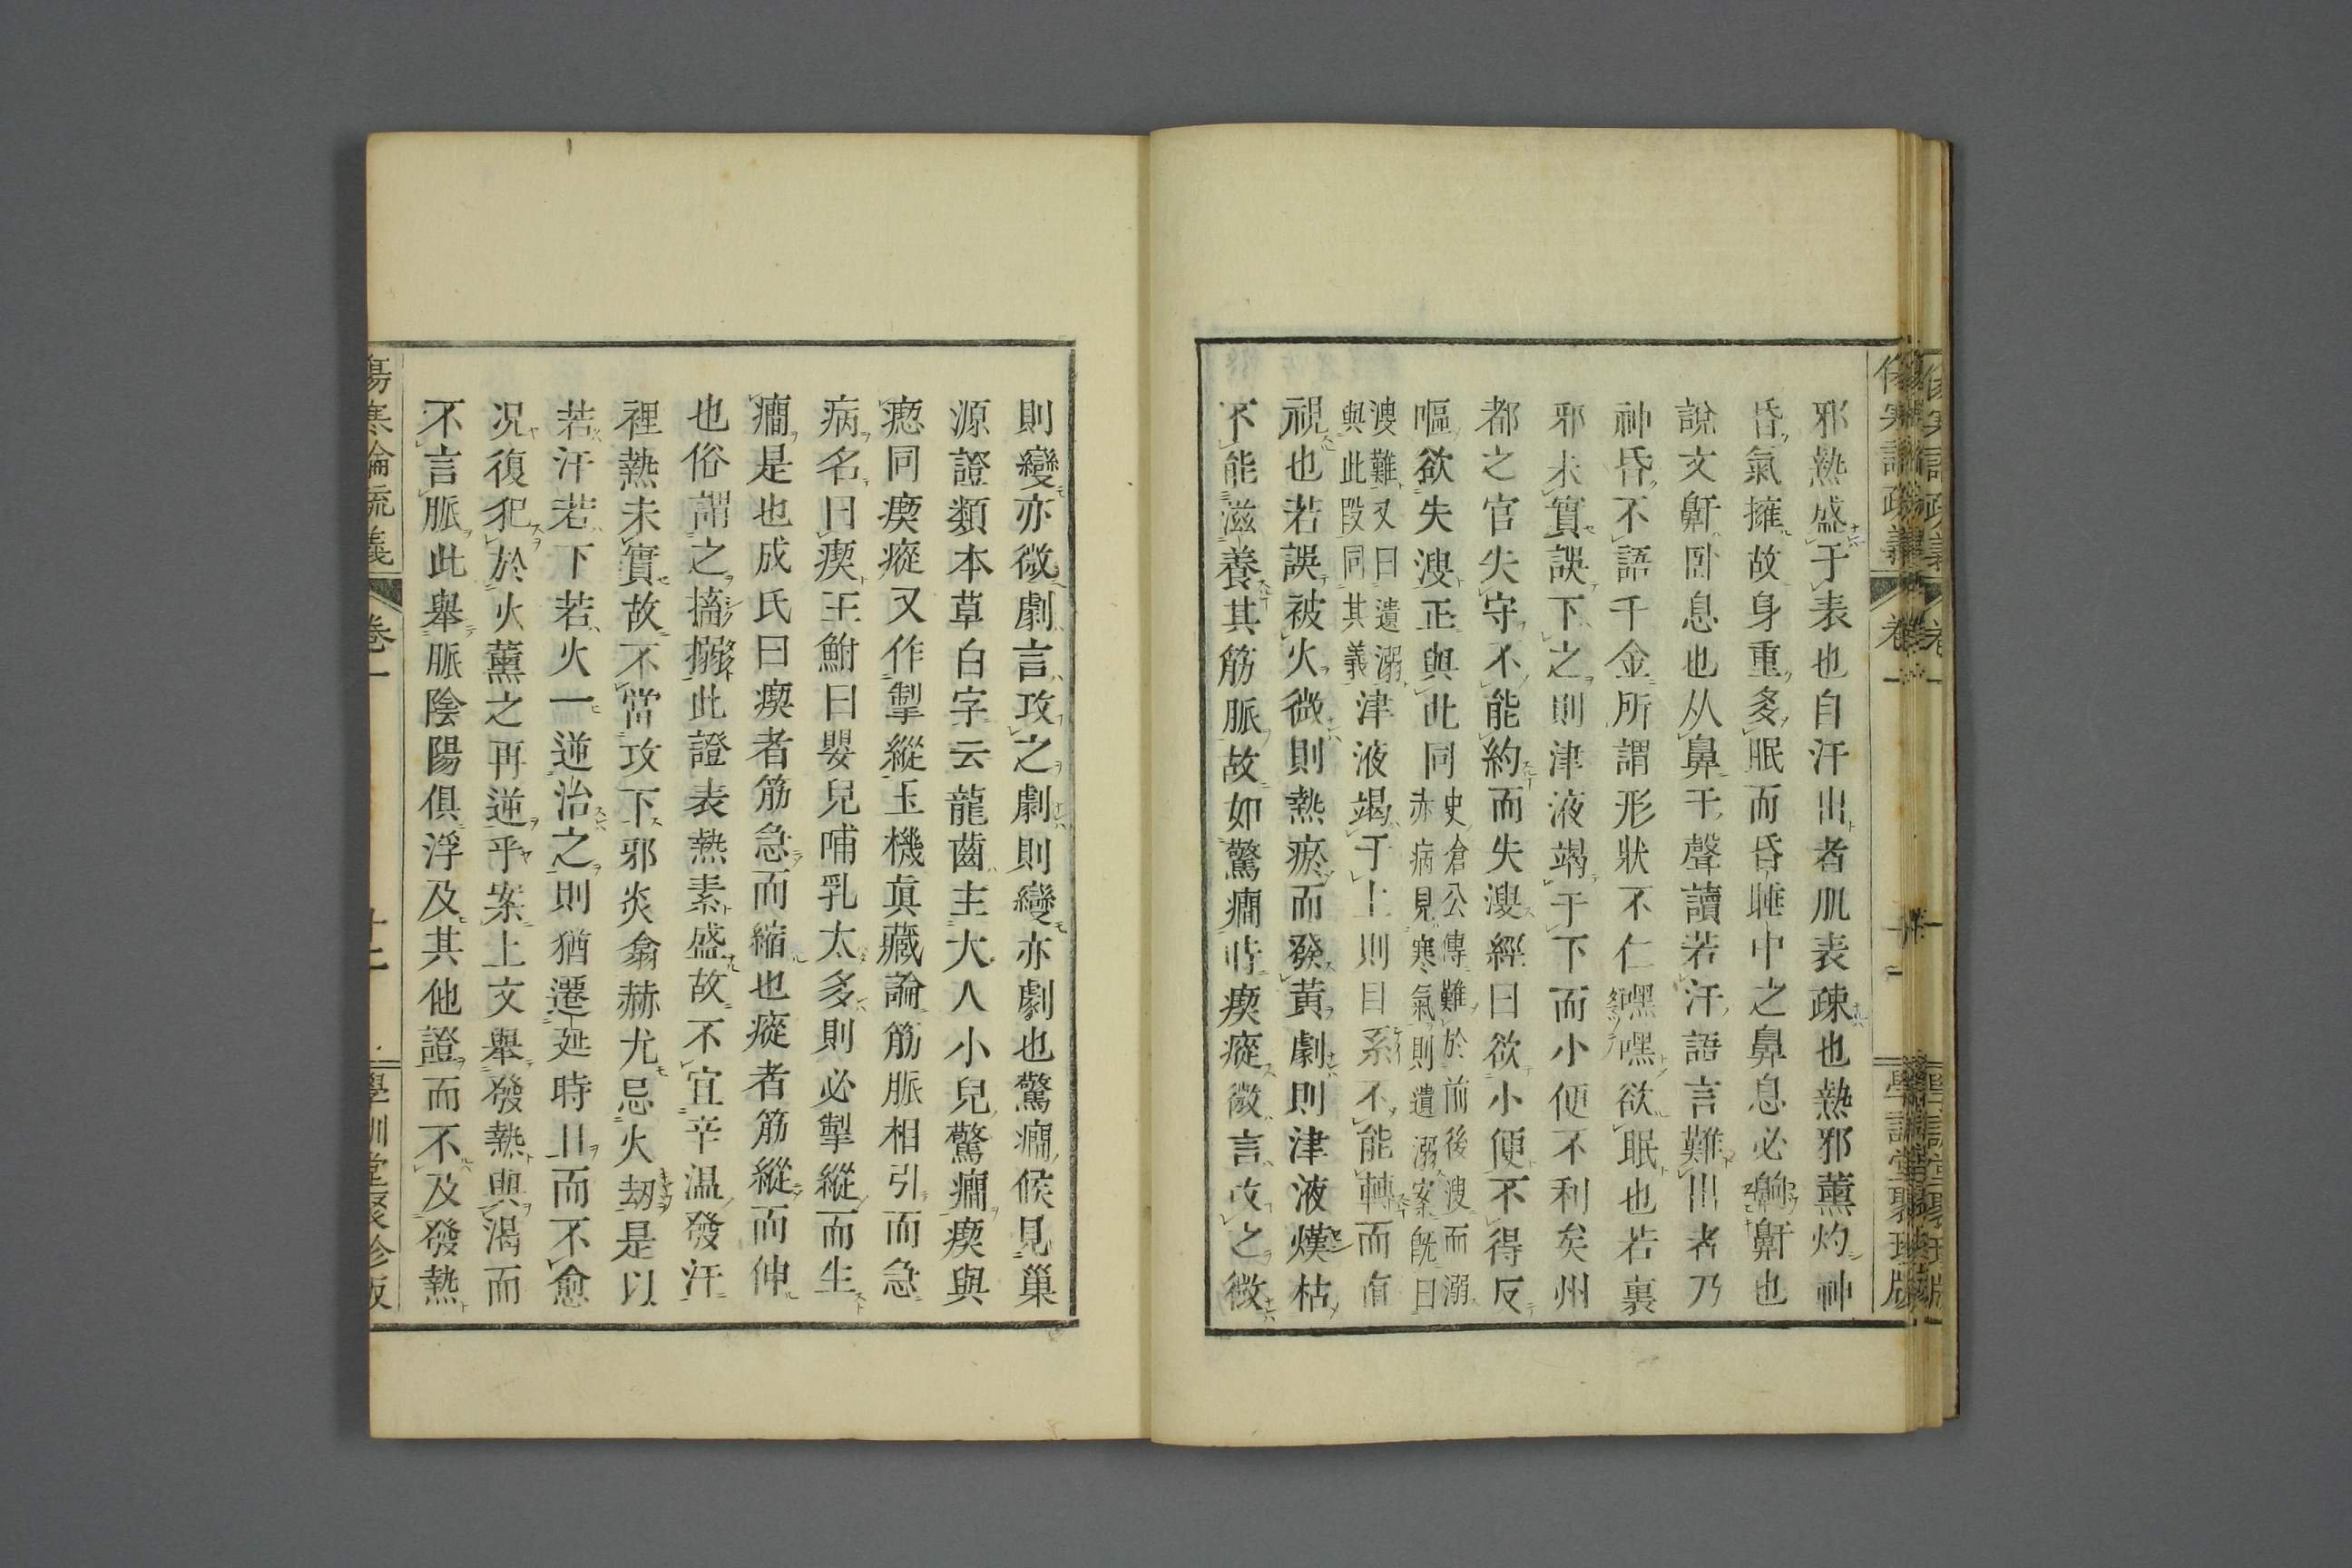 邪熱盛于表也自汗出者肌表疎也熱邪薰灼神
昏氣擁故身重多眠而昏睡中之鼻息必齁鼾也
說文鼾臥息也从鼻干聲讀若汗語言難出者乃
神昏不語千金所謂形狀不仁嘿嘿欲眠也若裏
邪未實誤下之則津液竭于下而小便不利矣州
都之官失守不能約而失溲經曰欲小便不得反
嘔欲失溲正與此同史倉公傳難於前後溲而溺赤病見寒氣則遺溺案旣曰
溲難又曰遺溺與此段同其義津液竭于上則目系不能轉而直
視也若誤被火微則熱瘀而發黃劇則津液熯枯
不能滋養其筋脈故如驚癎時瘈瘲微言攻之微
則變亦微劇言攻之劇則變亦劇也驚癎候見巢
源證類本草白字云龍齒主大人小兒驚癎瘈與
瘛同瘈瘲又作掣縱玉機眞藏論筋脈相引而急
病名曰瘈王鮒曰嬰兒哺乳太多則必掣縱而生
癎是也成氏曰瘈者筋急而縮也瘲者筋縱而伸
也俗謂之搐搦此證表熱素盛故不宜辛温發汗
裡熱未實故不當攻下邪炎翕赫尤忌火劫是以
若汗若下若火一逆治之則猶遷延時日而不愈
况復犯於火薰之再逆乎案上文舉發熱與渴而
不言脈此舉脈陰陽俱浮及其他證而不及發熱
傷寒論疏義
卷一
學訓堂聚珍版